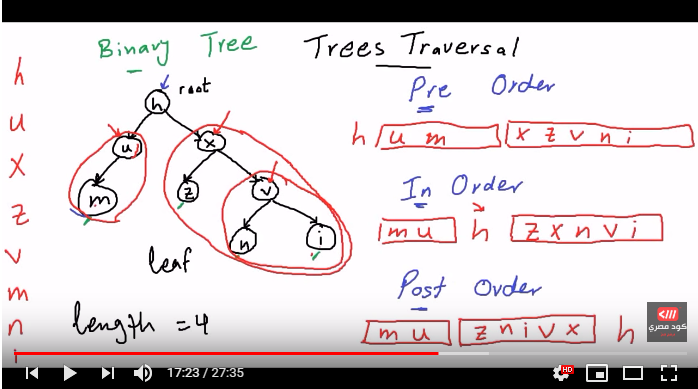 Binary Tree Trees Traversal
h
u
x
z
v
m
n
i
root
h
u
x
m
z
v
n
i
leaf
length = 4
Pre Order
h u m x z v n i
In Order
m u h z x n v i
Post Order
m u z n i v x h
كود مصري
17:23 / 27:35
HD